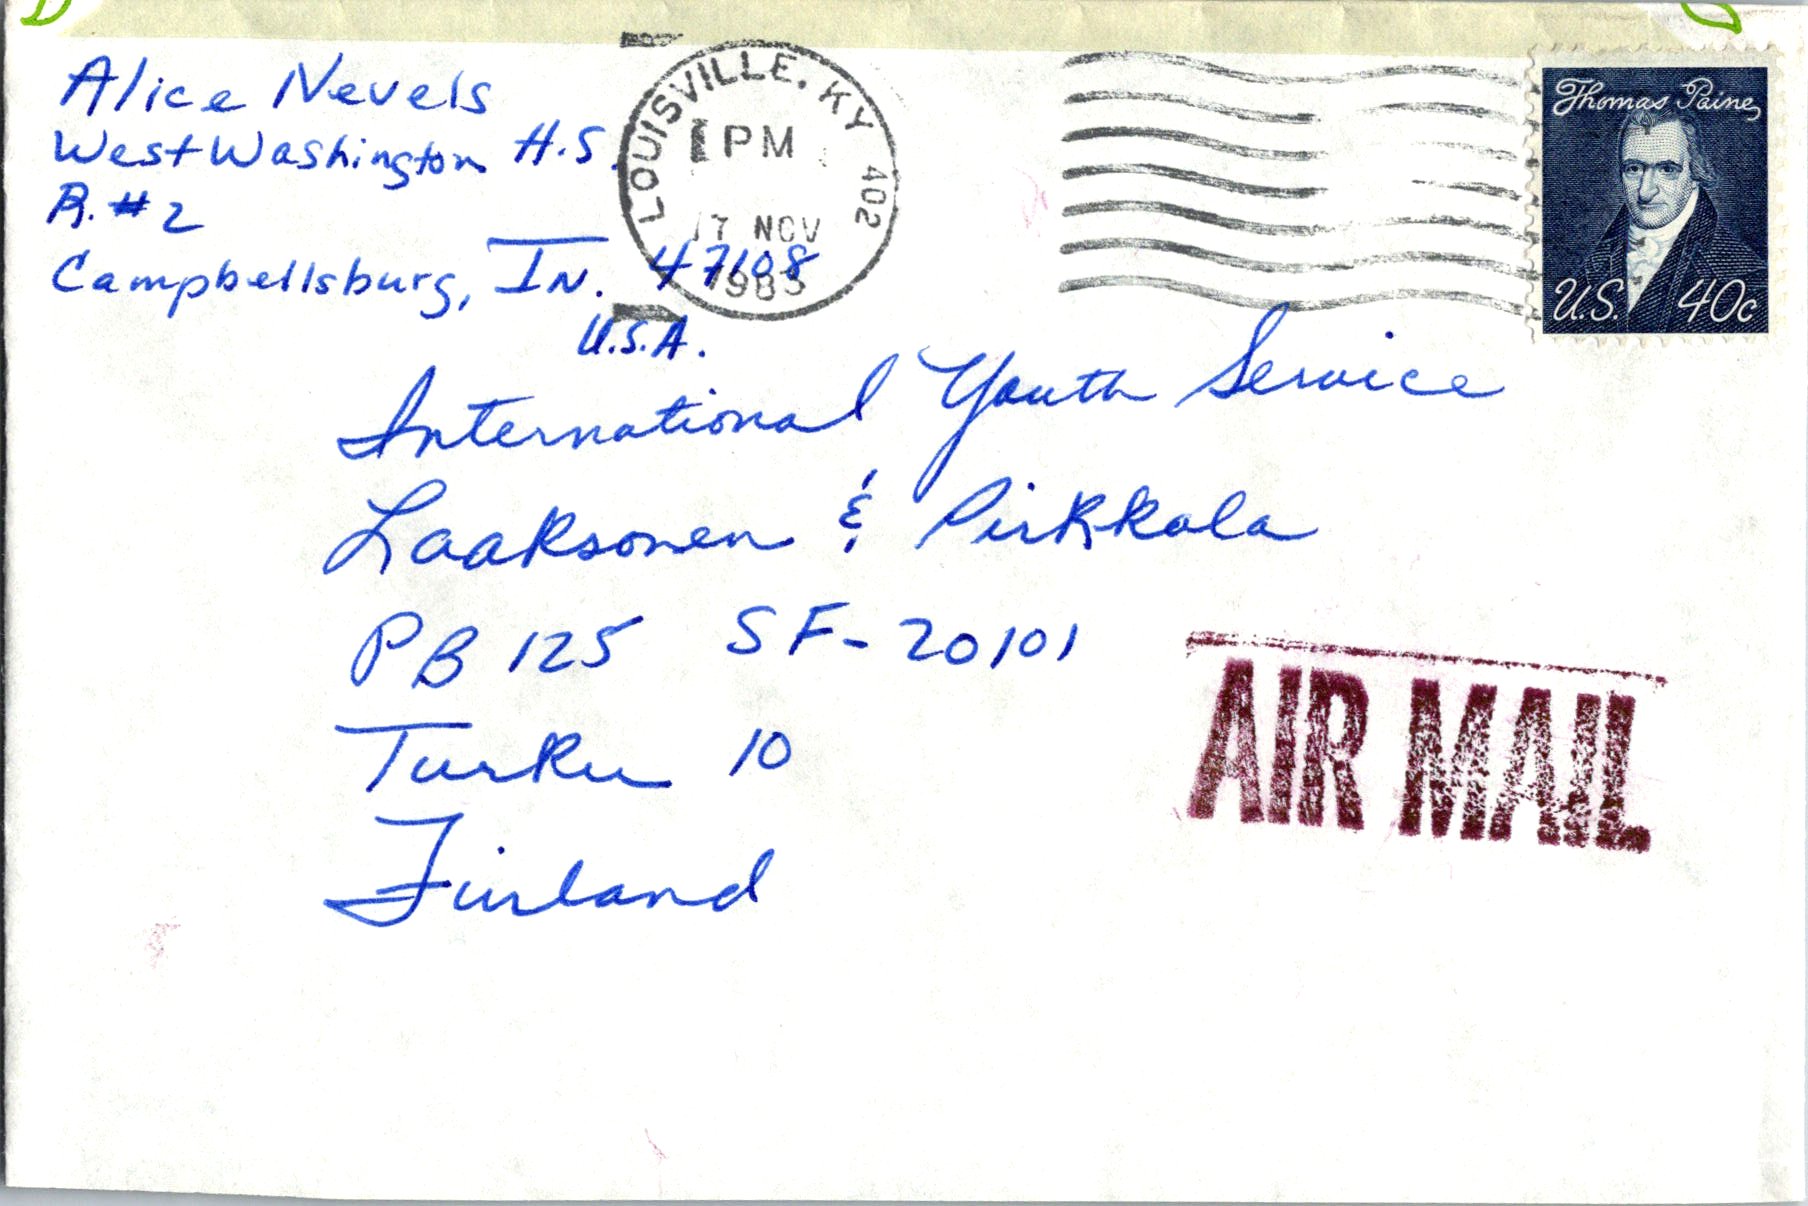 Alice Nevels
West Washington H.S.
R. #2
Campbellsburg, IN. 47108
U.S.A.
LOUISVILLE, KY 402
PM
17 NOV
1983
Thomas Paine
U.S. 40c
International Youth Service
Laaksonen & Pirkkala
PB 125 SF-20101
Turku 10
Finland
AIR MAIL